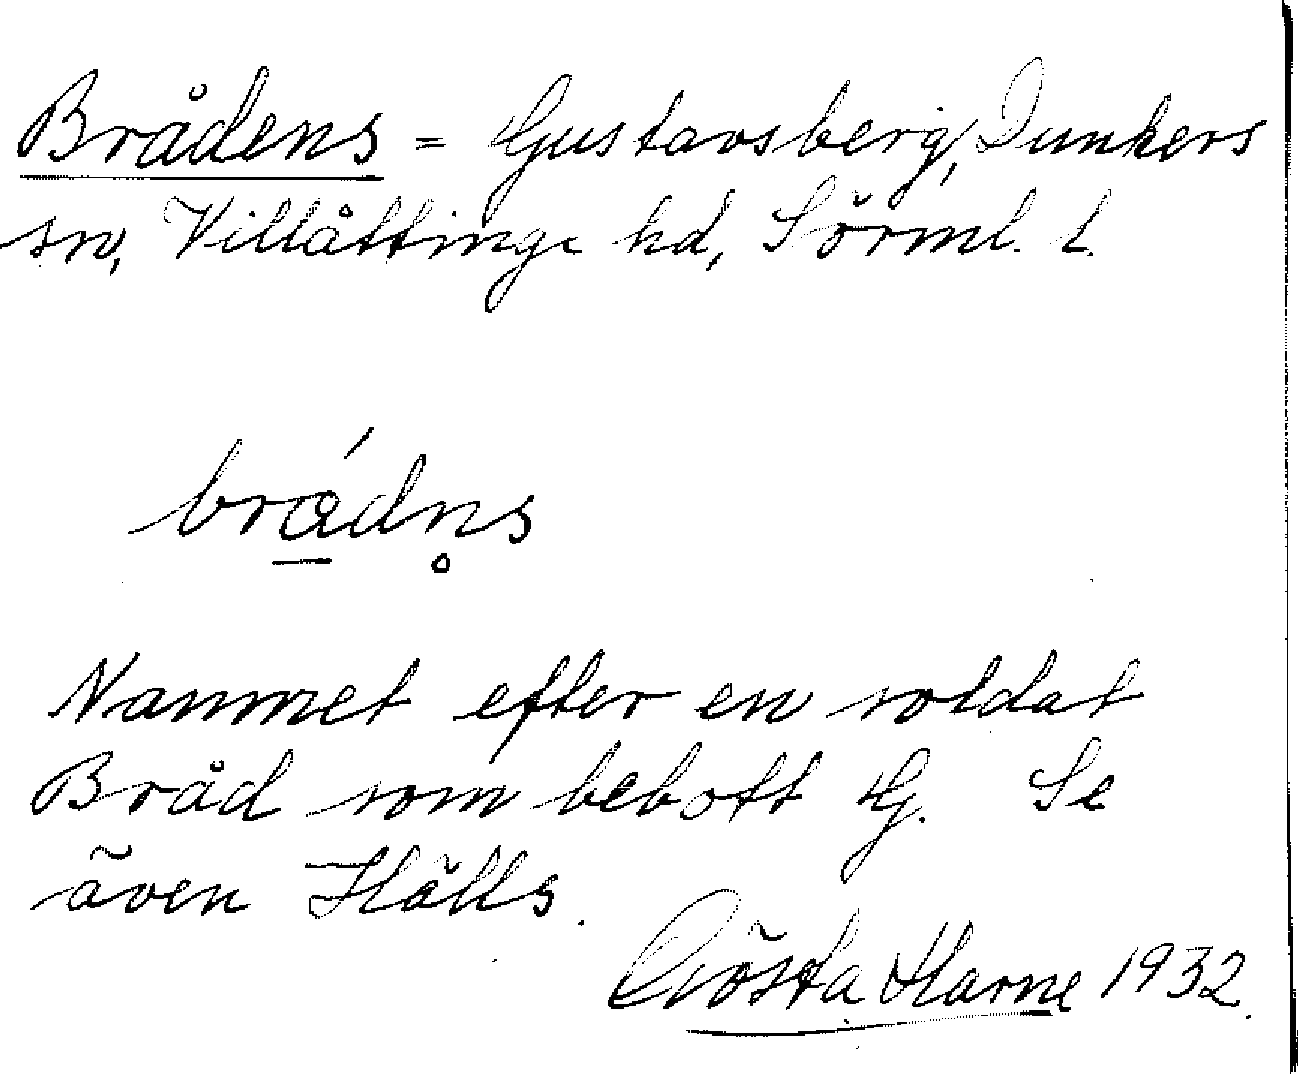 Brådens = Gustavsberg, Dunkers
sn, Villåttinge hd, Sörml. l.
brádn̥s
Namnet efter en soldat
Bråd som bebott G. Se
även Hälls.
Gösta Harne 1932.